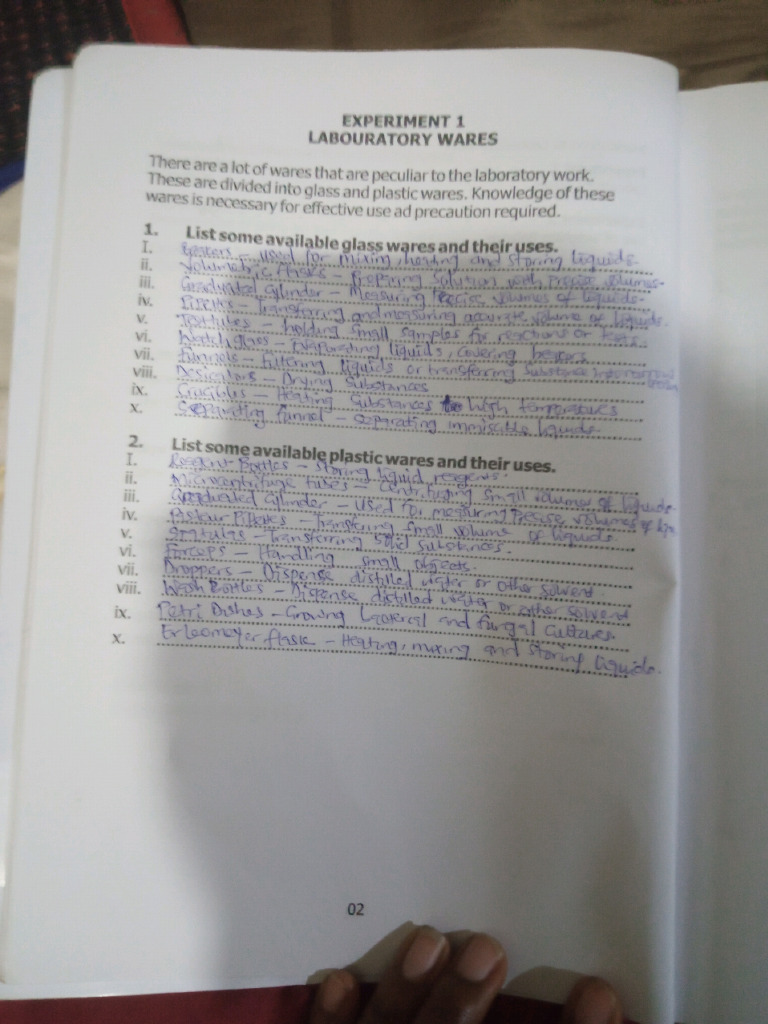 EXPERIMENT 1
LABOURATORY WARES
There are a lot of wares that are peculiar to the laboratory work.
These are divided into glass and plastic wares. Knowledge of these
wares is necessary for effective use ad precaution required.
1. List some available glass wares and their uses.
I. Beakers - used for mixing, heating and storing liquids
ii. Volumetric flasks - Preparing solution with precise volumes
iii. Graduated Cylinder - Measuring Precise volumes of liquids
iv. Pipettes - Transferring and measuring accurate volume of liquids.
v. Test tubes - Holding small samples for reactions or tests.
vi. Watch glass - Evaporating liquids, covering beakers
vii. Funnels - Filtering liquids or transferring substance into narrow
viii. Desicators - Drying Substances
ix. Crucibles - Heating Substances to high temperatures
x. Separating funnel - Separating immiscible liquids
2. List some available plastic wares and their uses.
I. Reagent Bottles - Storing liquid reagents.
ii. Microcentrifuge tubes - Centrifuging small volumes of liquids
iii. Graduated Cylinder - Used for measuring Precise volumes of
iv. Pasteur Pipettes - Transferring small volume of liquids
v. Spatulas - Transferring solid substances.
vi. Forceps - Handling small objects.
vii. Droppers - Dispense distilled water or other solvent.
viii. Wash Bottles - Dispense distilled water or other solvent
ix. Petri Dishes - Growing bacterial and fungal cultures
x. flask - Heating, mixing and storing liquids.
02